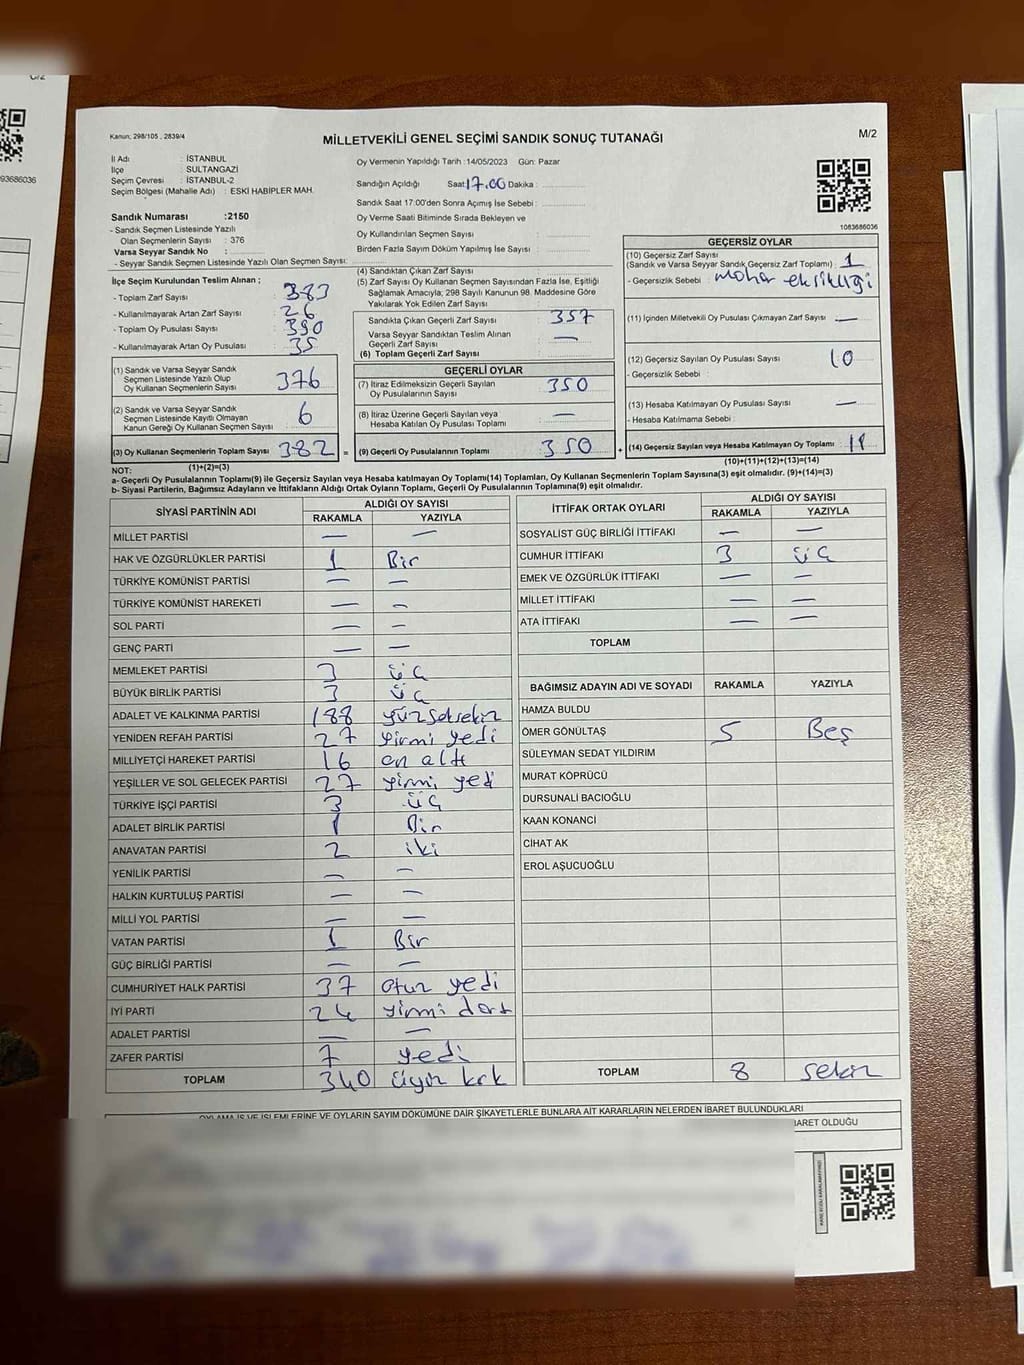 C/2
93686036
Kanun; 298/105 , 2839/4
MİLLETVEKİLİ GENEL SEÇİMİ SANDIK SONUÇ TUTANAĞI
M/2
İl Adı : İSTANBUL
İlçe : SULTANGAZİ
Seçim Çevresi : İSTANBUL-2
Seçim Bölgesi (Mahalle Adı) : ESKİ HABİPLER MAH.
Oy Vermenin Yapıldığı Tarih :14/05/2023 Gün: Pazar
Sandığın Açıldığı Saat:17.00 Dakika :
Sandık Saat 17:00'den Sonra Açımış İse Sebebi :
Oy Verme Saati Bitiminde Sırada Bekleyen ve
Oy Kullandırılan Seçmen Sayısı :
Birden Fazla Sayım Döküm Yapılmış İse Sayısı :
1083686036
Sandık Numarası :2150
- Sandık Seçmen Listesinde Yazılı
Olan Seçmenlerin Sayısı : 376
Varsa Seyyar Sandık No :
- Seyyar Sandık Seçmen Listesinde Yazılı Olan Seçmen Sayısı:
İlçe Seçim Kurulundan Teslim Alınan ;
- Toplam Zarf Sayısı : 383
- Kullanılmayarak Artan Zarf Sayısı : 26
- Toplam Oy Pusulası Sayısı : 390
- Kullanılmayarak Artan Oy Pusulası : 35
(1) Sandık ve Varsa Seyyar Sandık
Seçmen Listesinde Yazılı Olup
Oy Kullanan Seçmenlerin Sayısı : 376
(2) Sandık ve Varsa Seyyar Sandık
Seçmen Listesinde Kayıtlı Olmayan
Kanun Gereği Oy Kullanan Seçmen Sayısı : 6
(3) Oy Kullanan Seçmenlerin Toplam Sayısı : 382 =
(1)+(2)=(3)
(4) Sandıktan Çıkan Zarf Sayısı :
(5) Zarf Sayısı Oy Kullanan Seçmen Sayısından Fazla İse, Eşitliği
Sağlamak Amacıyla; 298 Sayılı Kanunun 98. Maddesine Göre
Yakılarak Yok Edilen Zarf Sayısı :
Sandıkta Çıkan Geçerli Zarf Sayısı : 357
Varsa Seyyar Sandıktan Teslim Alınan
Geçerli Zarf Sayısı : —
(6) Toplam Geçerli Zarf Sayısı :
GEÇERLİ OYLAR
(7) İtiraz Edilmeksizin Geçerli Sayılan
Oy Pusulalarının Sayısı : 350
(8) İtiraz Üzerine Geçerli Sayılan veya
Hesaba Katılan Oy Pusulası Toplamı : —
(9) Geçerli Oy Pusulalarının Toplamı : 350 +
GEÇERSİZ OYLAR
(10) Geçersiz Zarf Sayısı
(Sandık ve Varsa Seyyar Sandık Geçersiz Zarf Toplamı) : 1
- Geçersizlik Sebebi : mohor eksikligi
(11) İçinden Milletvekili Oy Pusulası Çıkmayan Zarf Sayısı : —
(12) Geçersiz Sayılan Oy Pusulası Sayısı : 10
- Geçersizlik Sebebi :
(13) Hesaba Katılmayan Oy Pusulası Sayısı : —
- Hesaba Katılmama Sebebi :
(14) Geçersiz Sayılan veya Hesaba Katılmayan Oy Toplamı : 11
(10)+(11)+(12)+(13)=(14)
NOT:
a- Geçerli Oy Pusulalarının Toplamı(9) ile Geçersiz Sayılan veya Hesaba katılmayan Oy Pusulası(14) Toplamları, Oy Kullanan Seçmenlerin Toplam Sayısına(3) eşit olmalıdır. (9)+(14)=(3)
b- Siyasi Partilerin, Bağımsız Adayların ve İttifakların Aldığı Ortak Oyların Toplamı, Geçerli Oy Pusulalarının Toplamına(9) eşit olmalıdır.
SİYASİ PARTİNİN ADI ALDIĞI OY SAYISI
RAKAMLA YAZIYLA
MİLLET PARTİSİ — —
HAK VE ÖZGÜRLÜKLER PARTİSİ 1 Bir
TÜRKİYE KOMÜNİST PARTİSİ — —
TÜRKİYE KOMÜNİST HAREKETİ — —
SOL PARTİ — —
GENÇ PARTİ — —
MEMLEKET PARTİSİ 3 üç
BÜYÜK BİRLİK PARTİSİ 3 üç
ADALET VE KALKINMA PARTİSİ 188 yüzseksekiz
YENİDEN REFAH PARTİSİ 27 yirmi yedi
MİLLİYETÇİ HAREKET PARTİSİ 16 on altı
YEŞİLLER VE SOL GELECEK PARTİSİ 27 yirmi yedi
TÜRKİYE İŞÇİ PARTİSİ 3 üç
ADALET BİRLİK PARTİSİ 1 Bir
ANAVATAN PARTİSİ 2 iki
YENİLİK PARTİSİ — —
HALKIN KURTULUŞ PARTİSİ — —
MİLLİ YOL PARTİSİ — —
VATAN PARTİSİ 1 Bir
GÜÇ BİRLİĞİ PARTİSİ — —
CUMHURİYET HALK PARTİSİ 37 otuz yedi
İYİ PARTİ 24 yirmi dört
ADALET PARTİSİ — —
ZAFER PARTİSİ 7 yedi
TOPLAM 340 üçyüz kırk
İTTİFAK ORTAK OYLARI ALDIĞI OY SAYISI
RAKAMLA YAZIYLA
SOSYALİST GÜÇ BİRLİĞİ İTTİFAKI — —
CUMHUR İTTİFAKI 3 üç
EMEK VE ÖZGÜRLÜK İTTİFAKI — —
MİLLET İTTİFAKI — —
ATA İTTİFAKI — —
TOPLAM
BAĞIMSIZ ADAYIN ADI VE SOYADI RAKAMLA YAZIYLA
HAMZA BULDU
ÖMER GÖNÜLTAŞ 5 Beş
SÜLEYMAN SEDAT YILDIRIM
MURAT KÖPRÜCÜ
DURSUNALİ BACIOĞLU
KAAN KONANCİ
CİHAT AK
EROL AŞUCUOĞLU
TOPLAM 8 sekiz
OYLAMA İŞ VE İŞLEMLERİNE VE OYLARIN SAYIM DÖKÜMÜNE DAİR ŞİKAYETLERLE BUNLARA AİT KARARLARIN NELERDEN İBARET BULUNDUKLARI
BARET OLDUĞU